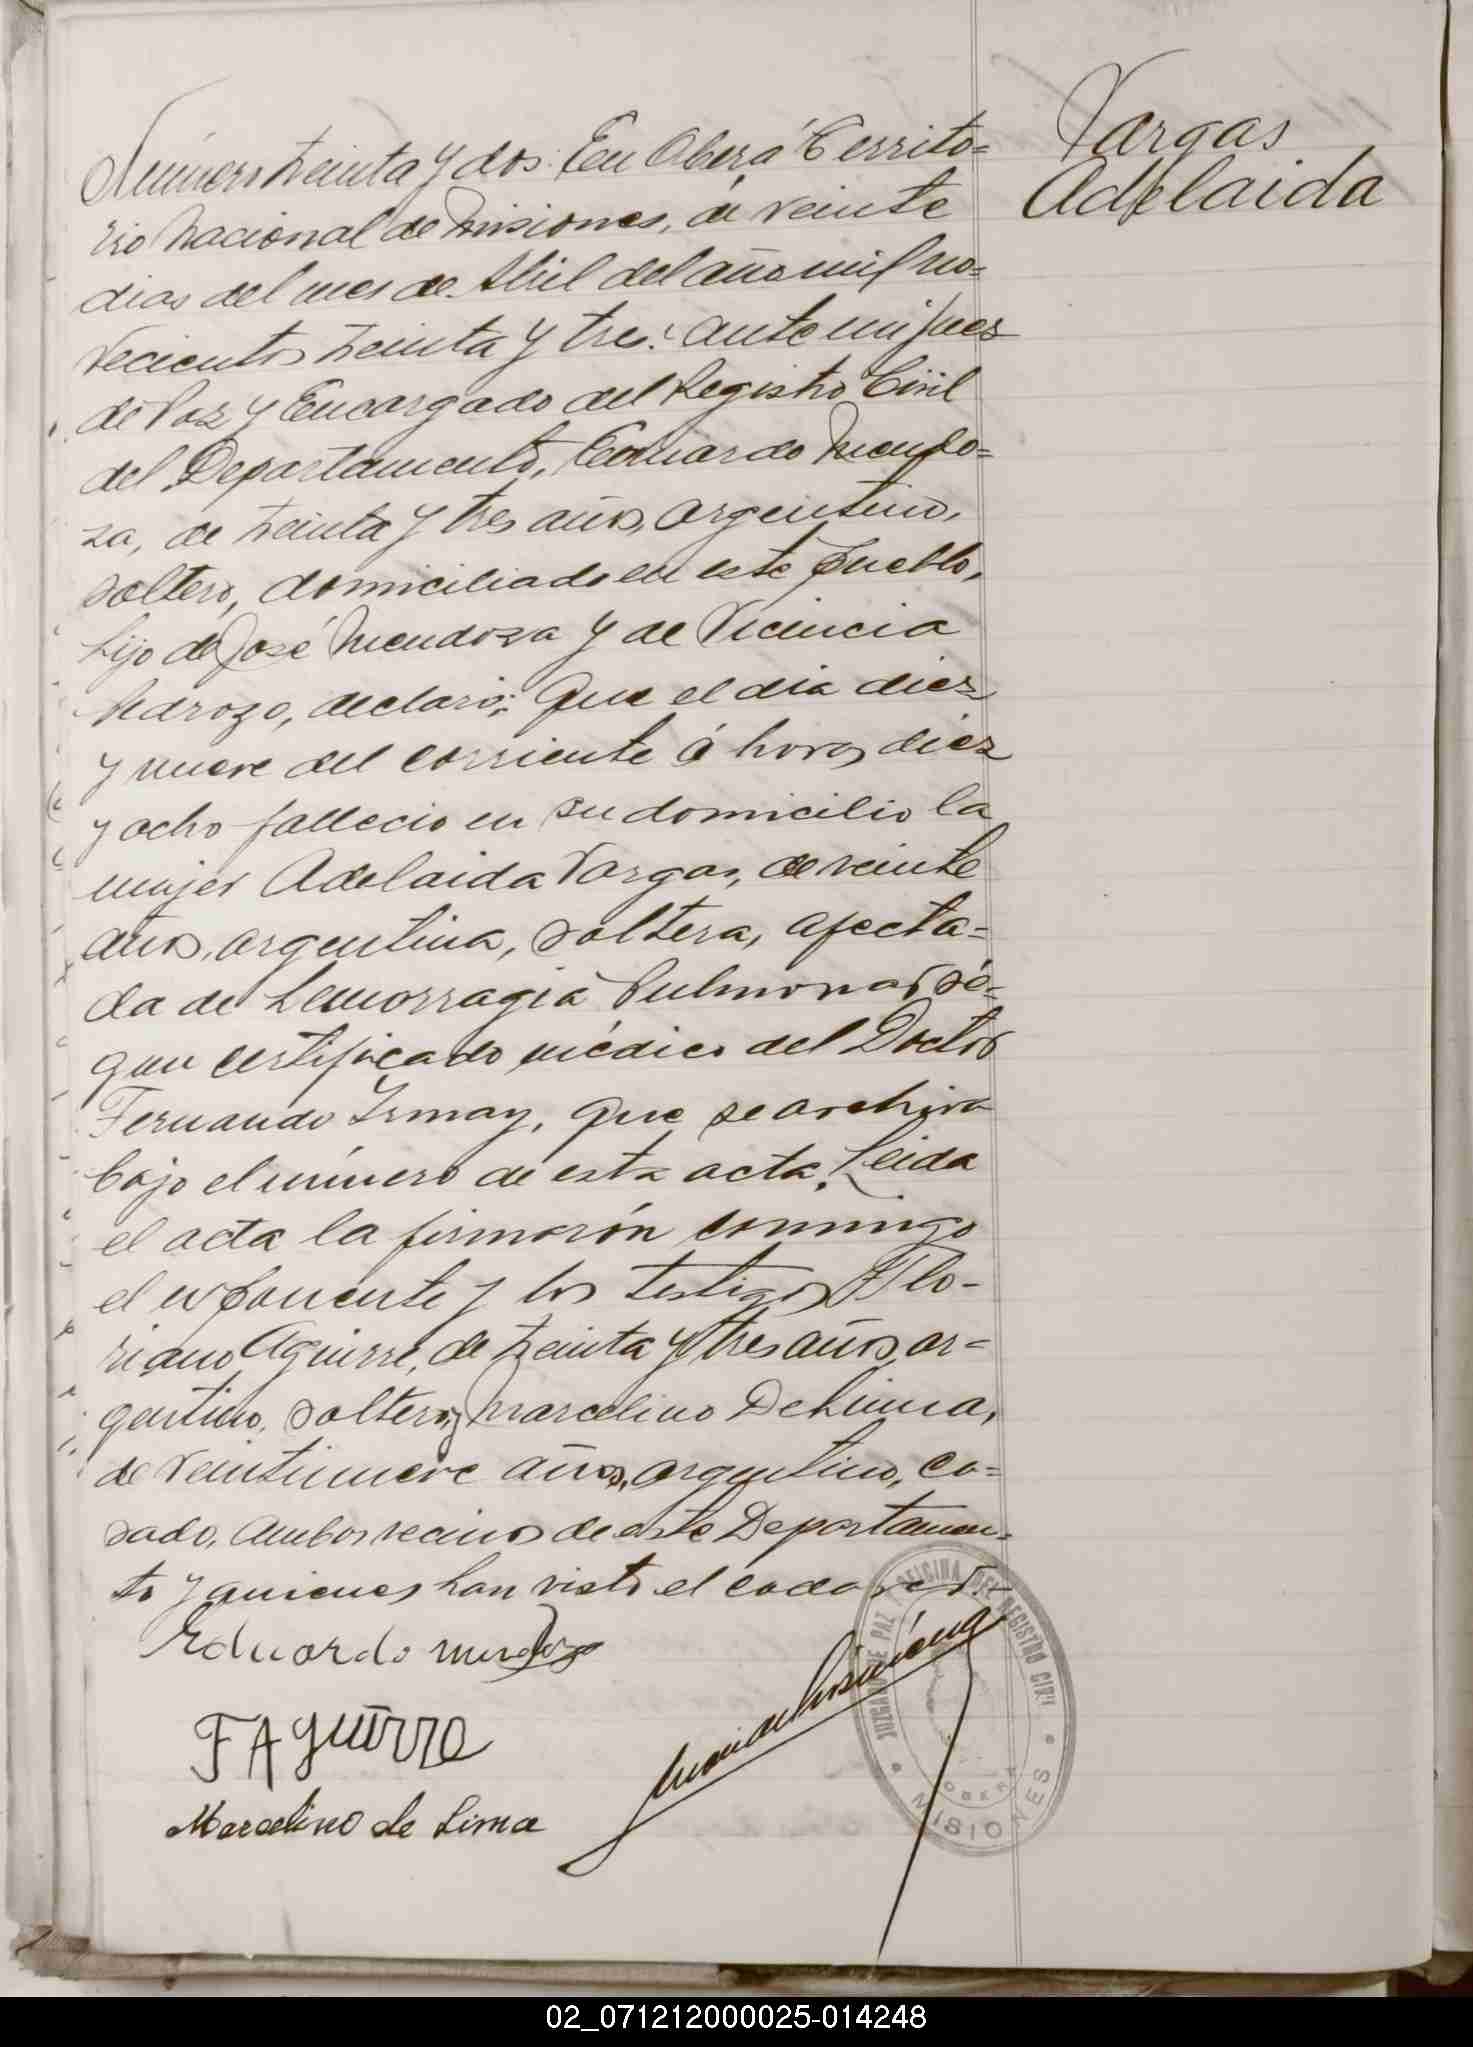 Vargas
Adelaida
Número treinta y dos: En Oberá Territo=
rio Nacional de Misiones, á veinte
dias del mes de Abril del año mil no=
vecientos treinta y tres: ante mi Juez
de Paz y Encargado del Registro Civil
del Departamento, Eduardo Mendo=
za, de treinta y tres años, argentino,
soltero, domiciliado en este pueblo,
hijo de José Mendoza y de Vicencia
Pedrozo, declaró: Que el dia diez
y nueve del corriente á horas diez
y ocho fallecio en su domicilio la
mujer Adelaida Vargas, de veinte
años, argentina, soltera, afecta=
da de hemorragia Pulmonar sé=
gun certificado médico del Doctor
Fernando Irmay, que se archiva
bajo el número de esta acta. Leida
el acta la firmarón conmigo
el exponente y los testigos Flo-
riano Aguirre, de treinta y tres años, ar=
gentino, soltero, y Marcelino De Lima,
de veintinueve años, argentino, ca=
sado, ambos vecinos de este Departamen=
to y quienes han visto el cadaver.-
Eduardo Mendoza
F Aguirre
Marcelino de Lima
JUZGADO DE PAZ Y OFICINA DEL REGISTRO CIVIL
OBERA
MISIONES
02_071212000025-014248